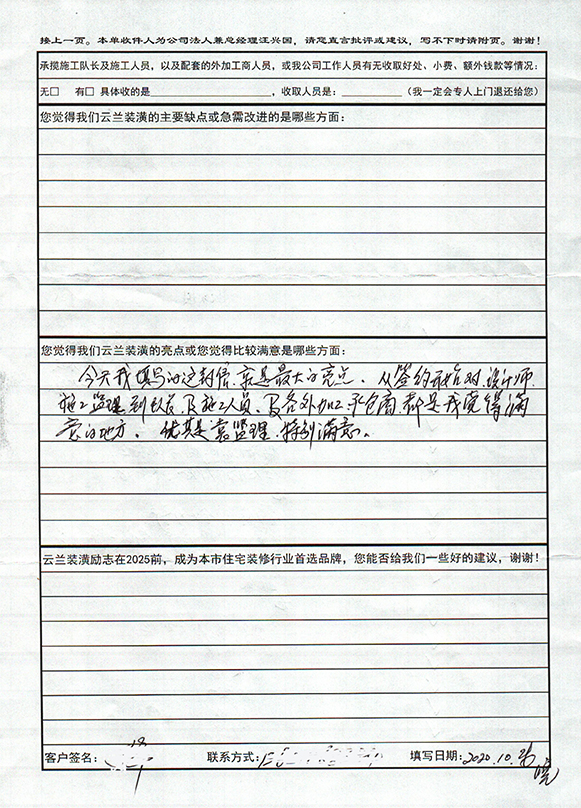 接上一页。本单收件人为公司法人兼总经理汪兴国，请您直言批评或建议，写不下时请附页。谢谢！
承揽施工队长及施工人员，以及配套的外加工商人员，或我公司工作人员有无收取好处、小费、额外钱款等情况：
无□ 有□ 具体收的是____________________，收取人员是：__________（我一定会专人上门退还给您）
您觉得我们云兰装潢的主要缺点或急需改进的是哪些方面：
您觉得我们云兰装潢的亮点或您觉得比较满意是哪些方面：
今天我填写的这封信，就是最大的亮点。从签约开始对设计师
施工监理到队长及施工人员，及各外加工 商都是我觉得满
意的地方。优其是袁监理，特别满意。
云兰装潢励志在2025前，成为本市住宅装修行业首选品牌，您能否给我们一些好的建议，谢谢！
客户签名： 联系方式： 填写日期：2020.10.